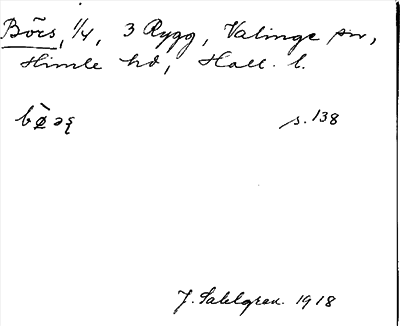 Börs, 1/4, 3 Rygg, Valinge sn,
Himle hd, Hall. l.
s. 138
J. Sahlgren. 1918